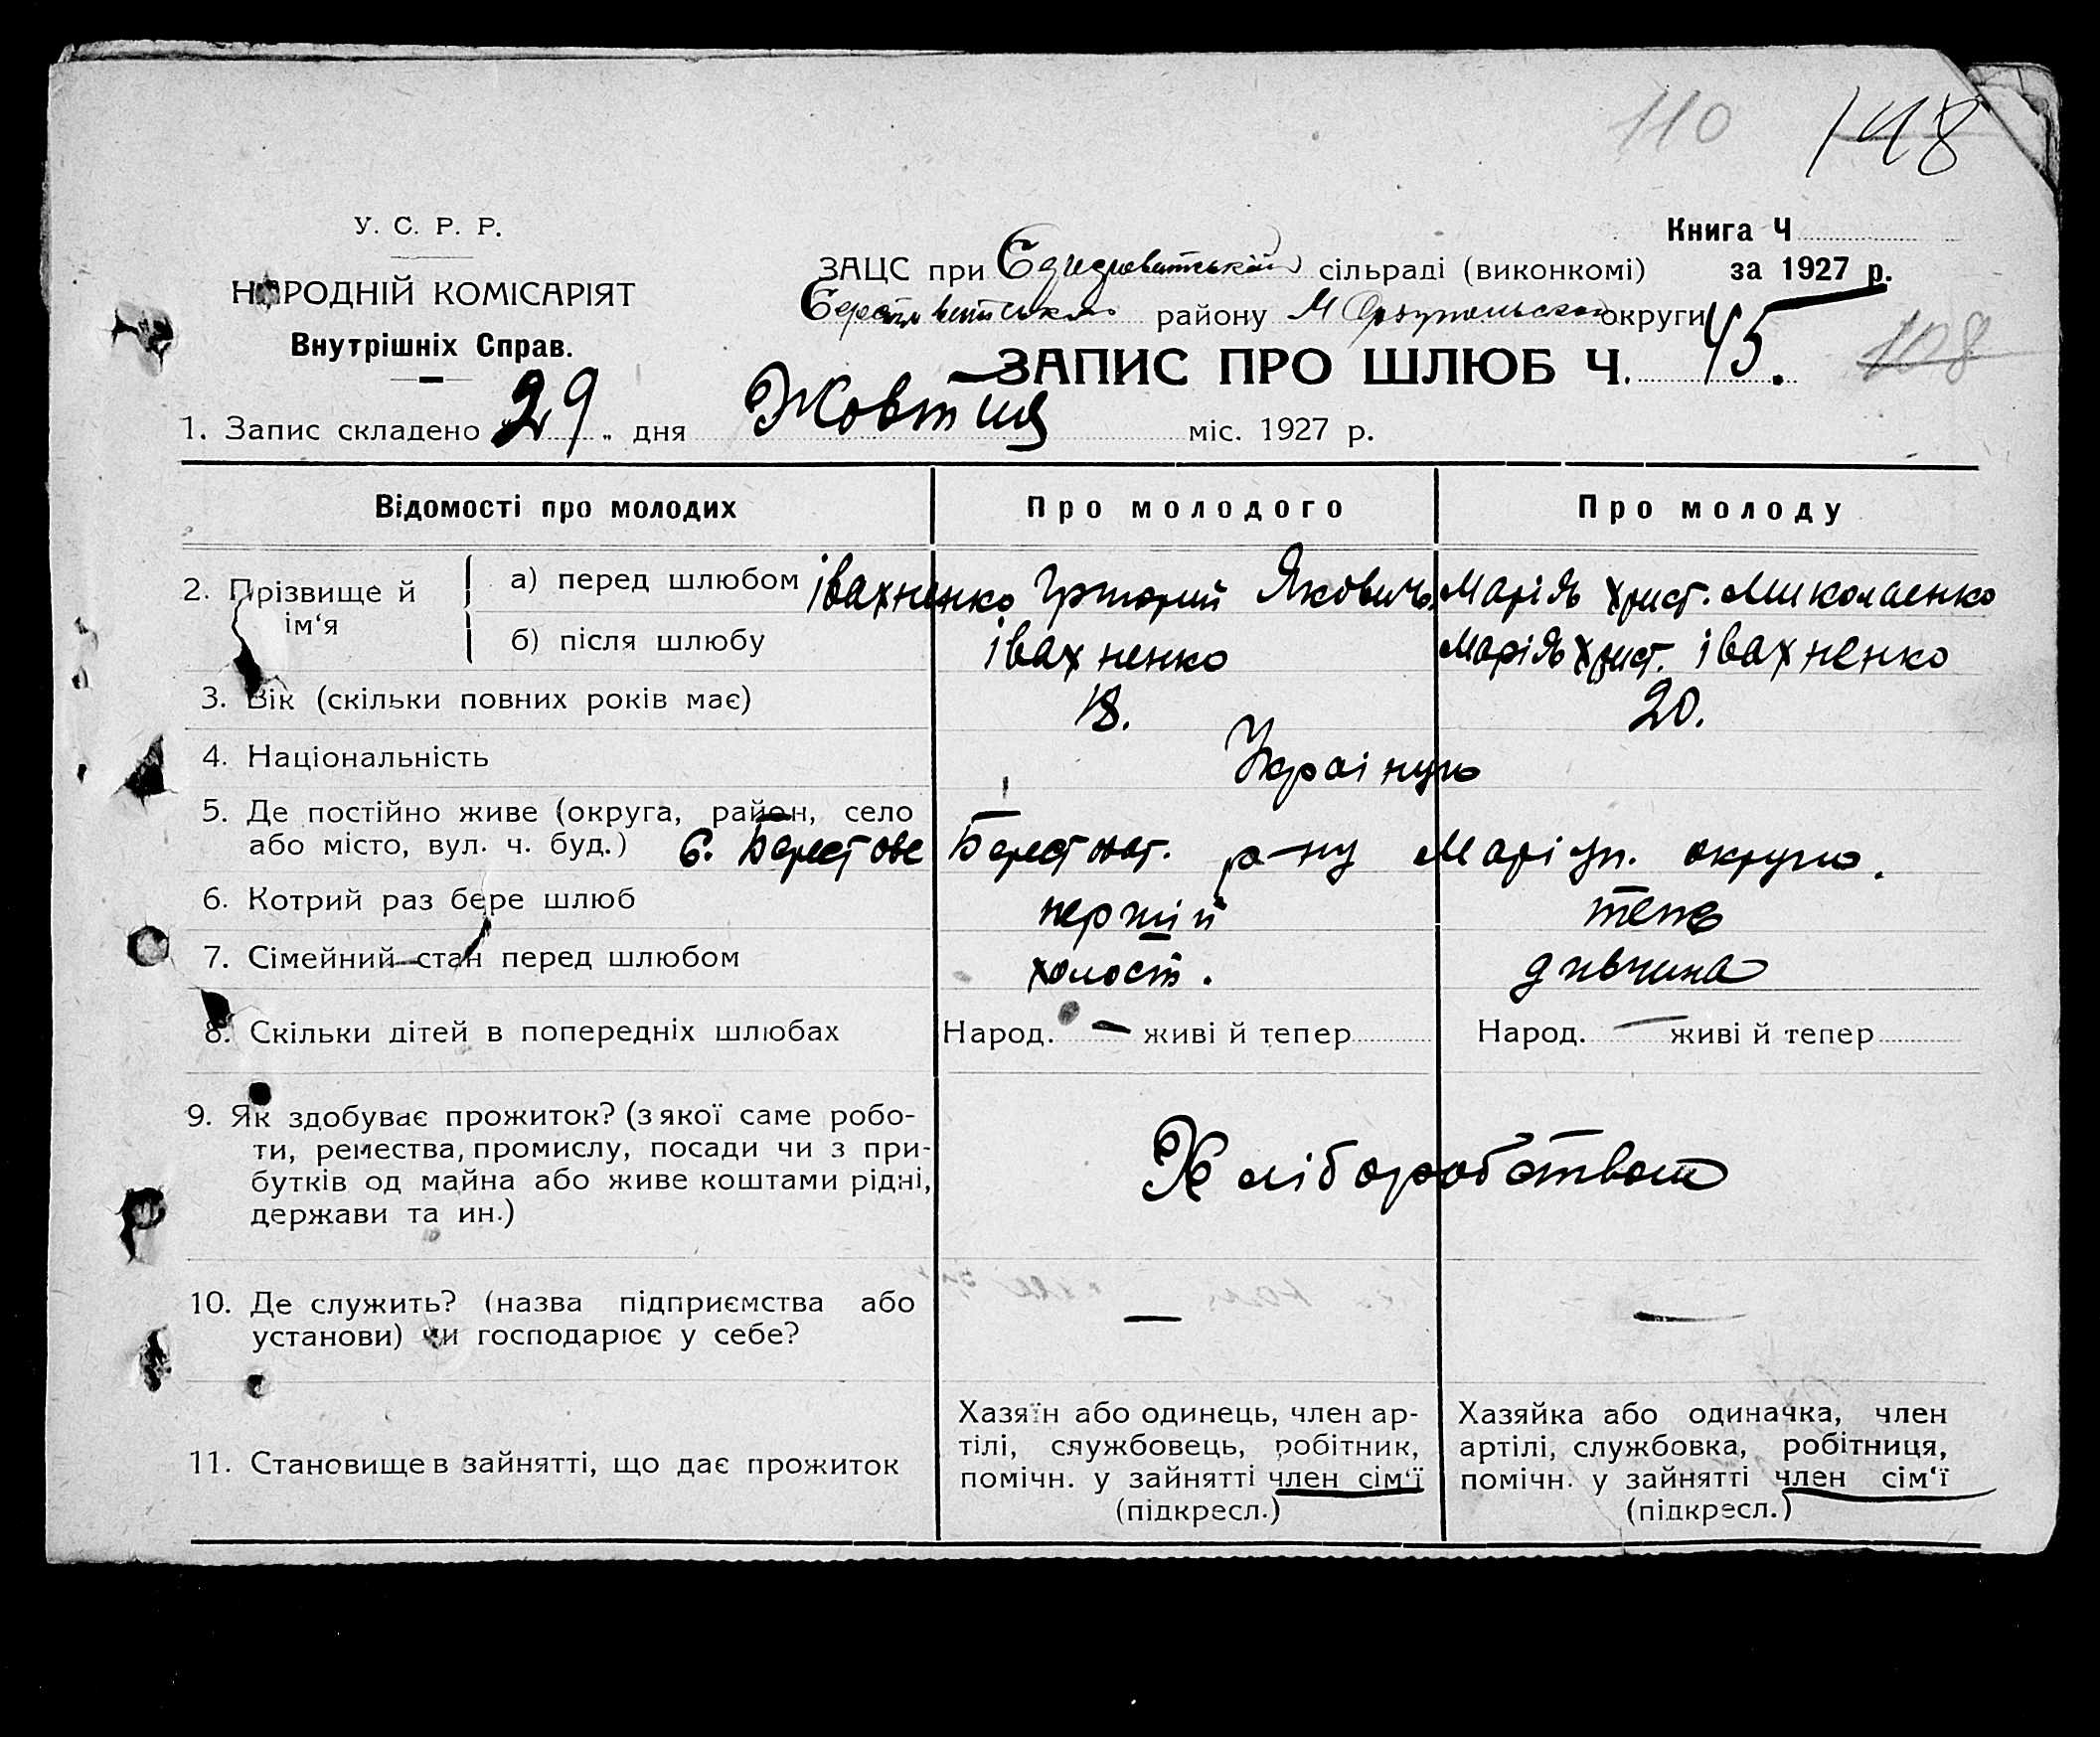 110 148
У. С. Р. Р.
НАРОДНІЙ КОМІСАРІЯТ
Внутрішніх Справ.
Книга Ч
ЗАЦС при сільраді (виконкомі) за 1927 р.
району округи
ЗАПИС ПРО ШЛЮБ Ч. 45. 108
1. Запис складено „29" дня Жовтня міс. 1927 р.
Відомості про молодих Про молодого Про молоду
2. Прізвище й ім'я
а) перед шлюбом івахненко Григорий Якович. Марія Христ. Миколаенко
б) після шлюбу івахненко Марія Христ. івахненко
3. Вік (скільки повних років має) 18. 20.
4. Національність Українці
5. Де постійно живе (округа, район, село
або місто, вул. ч. буд.) с. Берестове Берестоват. р-ну Маріуп. округи.
6. Котрий раз бере шлюб перший теж
7. Сімейний стан перед шлюбом холост. дивчина
8. Скільки дітей в попередніх шлюбах Народ. — живі й тепер Народ. — живі й тепер
9. Як здобуває прожиток? (з якої саме робо-
ти, ремества, промислу, посади чи з при-
бутків од майна або живе коштами рідні,
держави та ин.)
Хліборобством
10. Де служить? (назва підприємства або
установи) чи господарює у себе?
— —
11. Становище в зайнятті, що дає прожиток
Хазяїн або одинець, член ар-
тілі, службовець, робітник,
помічн. у зайнятті член сім'ї
(підкресл.)
Хазяйка або одиначка, член
артілі, службовка, робітниця,
помічн. у зайнятті член сім'ї
(підкресл.)